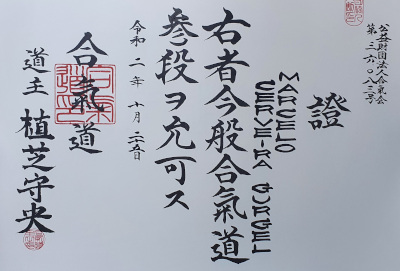 公益財団法人合氣会
第三六〇八三号
證
MARCELO
CERVEIRA GURGEL
右者今般合氣道
參段ヲ允可ス
令和二年十月二十五日
合氣道
道主 植芝守央